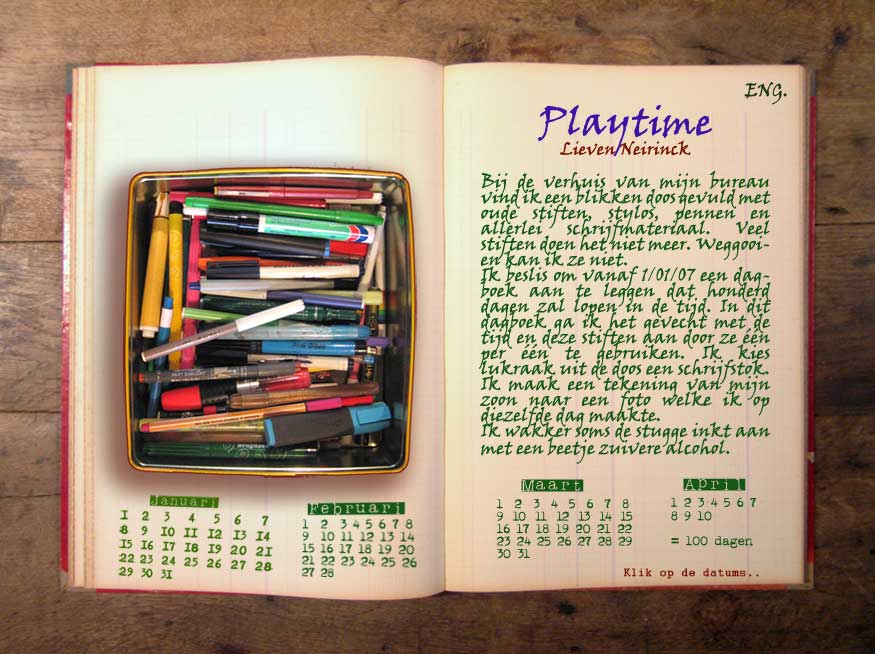 Januari
1 2 3 4 5 6 7
8 9 10 11 12 13 14
15 16 17 18 19 20 21
22 23 24 25 26 27 28
29 30 31
Februari
1 2 3 4 5 6 7 8
9 10 11 12 13 14
15 16 17 18 19 20
21 22 23 24 25 26
27 28
ENG.
Playtime
Lieven Neirinck
Bij de verhuis van mijn bureau
vind ik een blikken doos gevuld met
oude stiften, stylos, pennen en
allerlei schrijfmateriaal. Veel
stiften doen het niet meer. Weggooi-
en kan ik ze niet.
Ik beslis om vanaf 1/01/07 een dag-
boek aan te leggen dat honderd
dagen zal lopen in de tijd. In dit
dagboek ga ik het gevecht met de
tijd en deze stiften aan door ze één
per één te gebruiken. Ik kies
lukraak uit de doos een schrijfstok.
Ik maak een tekening van mijn
zoon naar een foto welke ik op
diezelfde dag maakte.
Ik wakker soms de stugge inkt aan
met een beetje zuivere alcohol.
Maart
1 2 3 4 5 6 7 8
9 10 11 12 13 14 15
16 17 18 19 20 21 22
23 24 25 26 27 28 29
30 31
April
1 2 3 4 5 6 7
8 9 10
= 100 dagen
Klik op de datums..